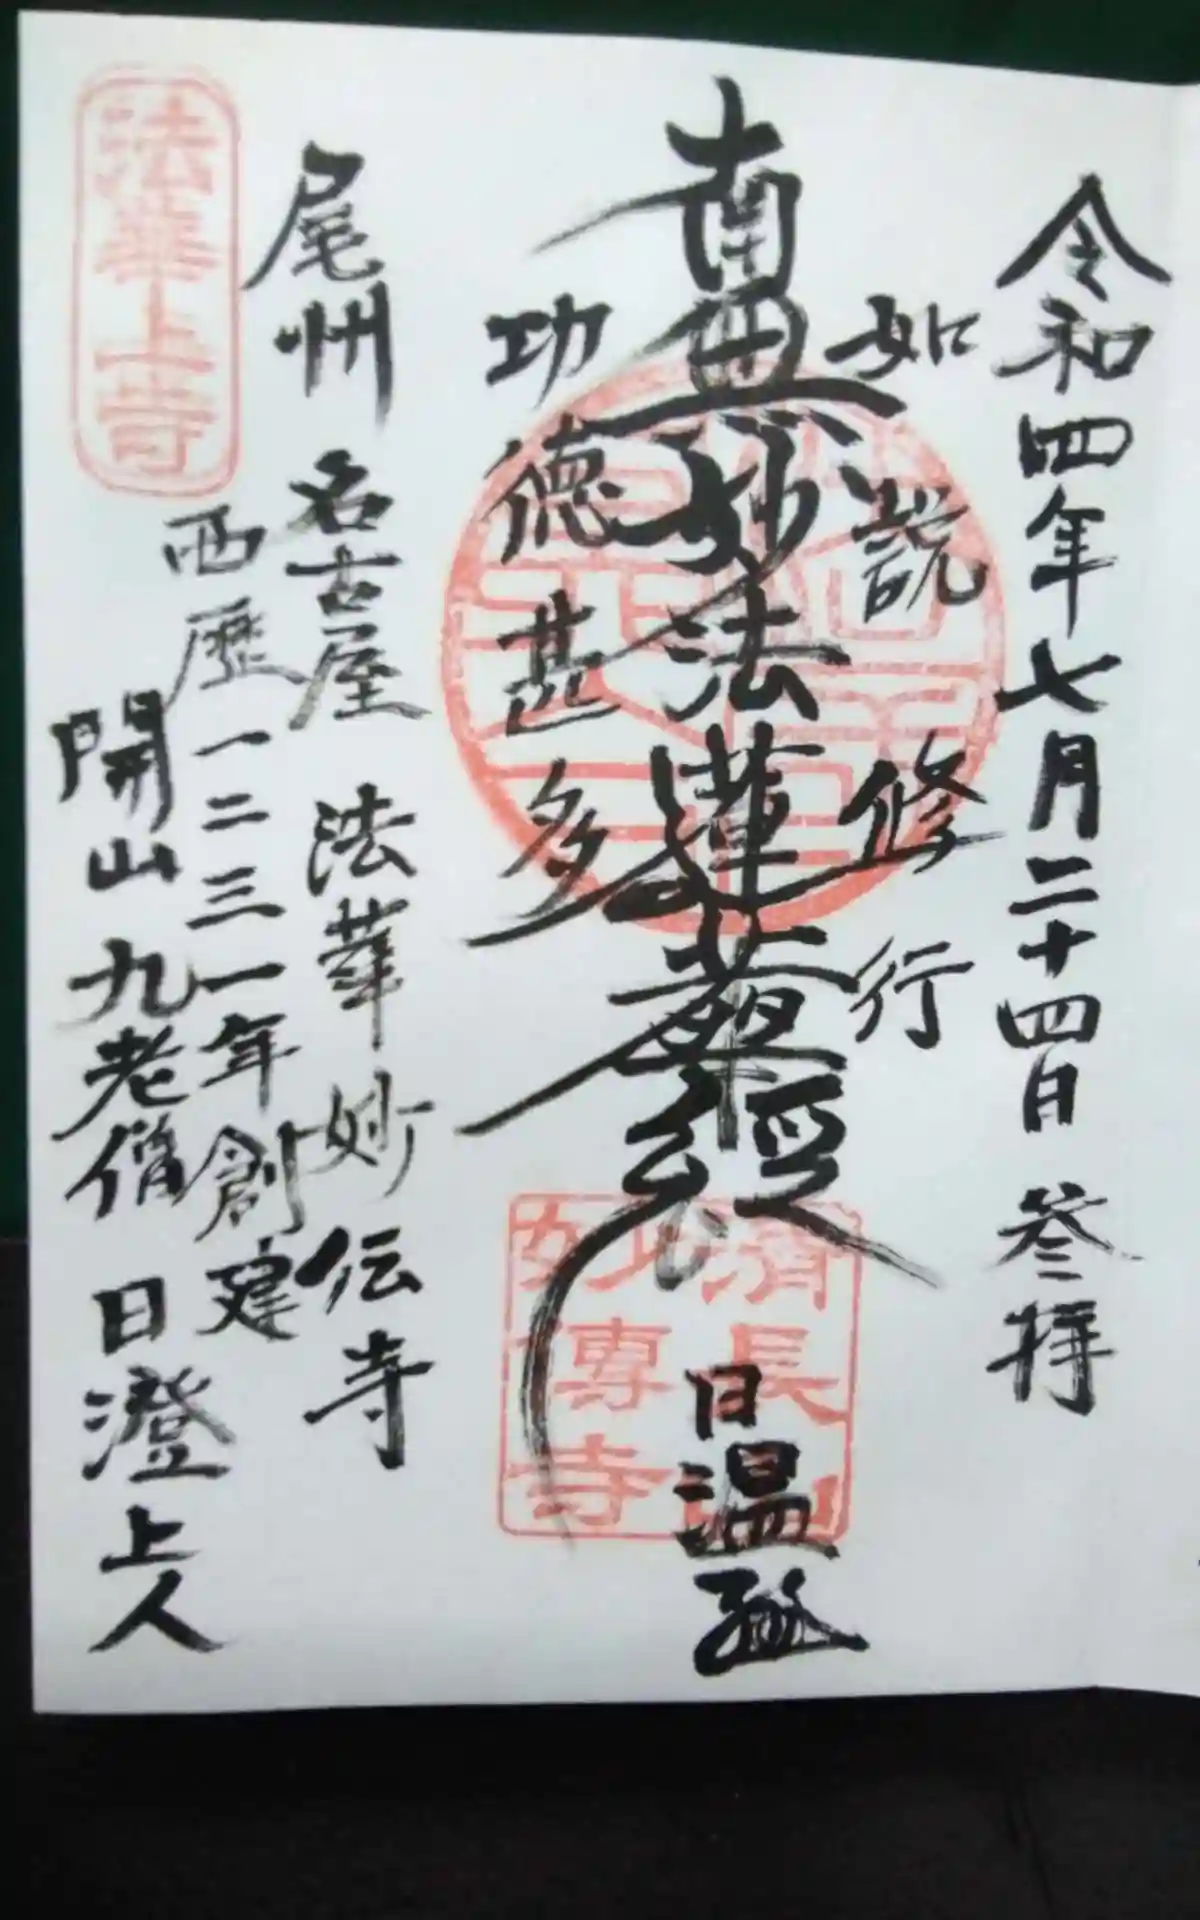 令和四年七月二十四日 参拝
如説修行
南無妙法蓮華経
日温
功徳甚多
尾州 名古屋 法華 妙伝寺
西歴一二三一年創建
開山 九老僧 日澄上人
法華上寺
清長山
妙傳寺